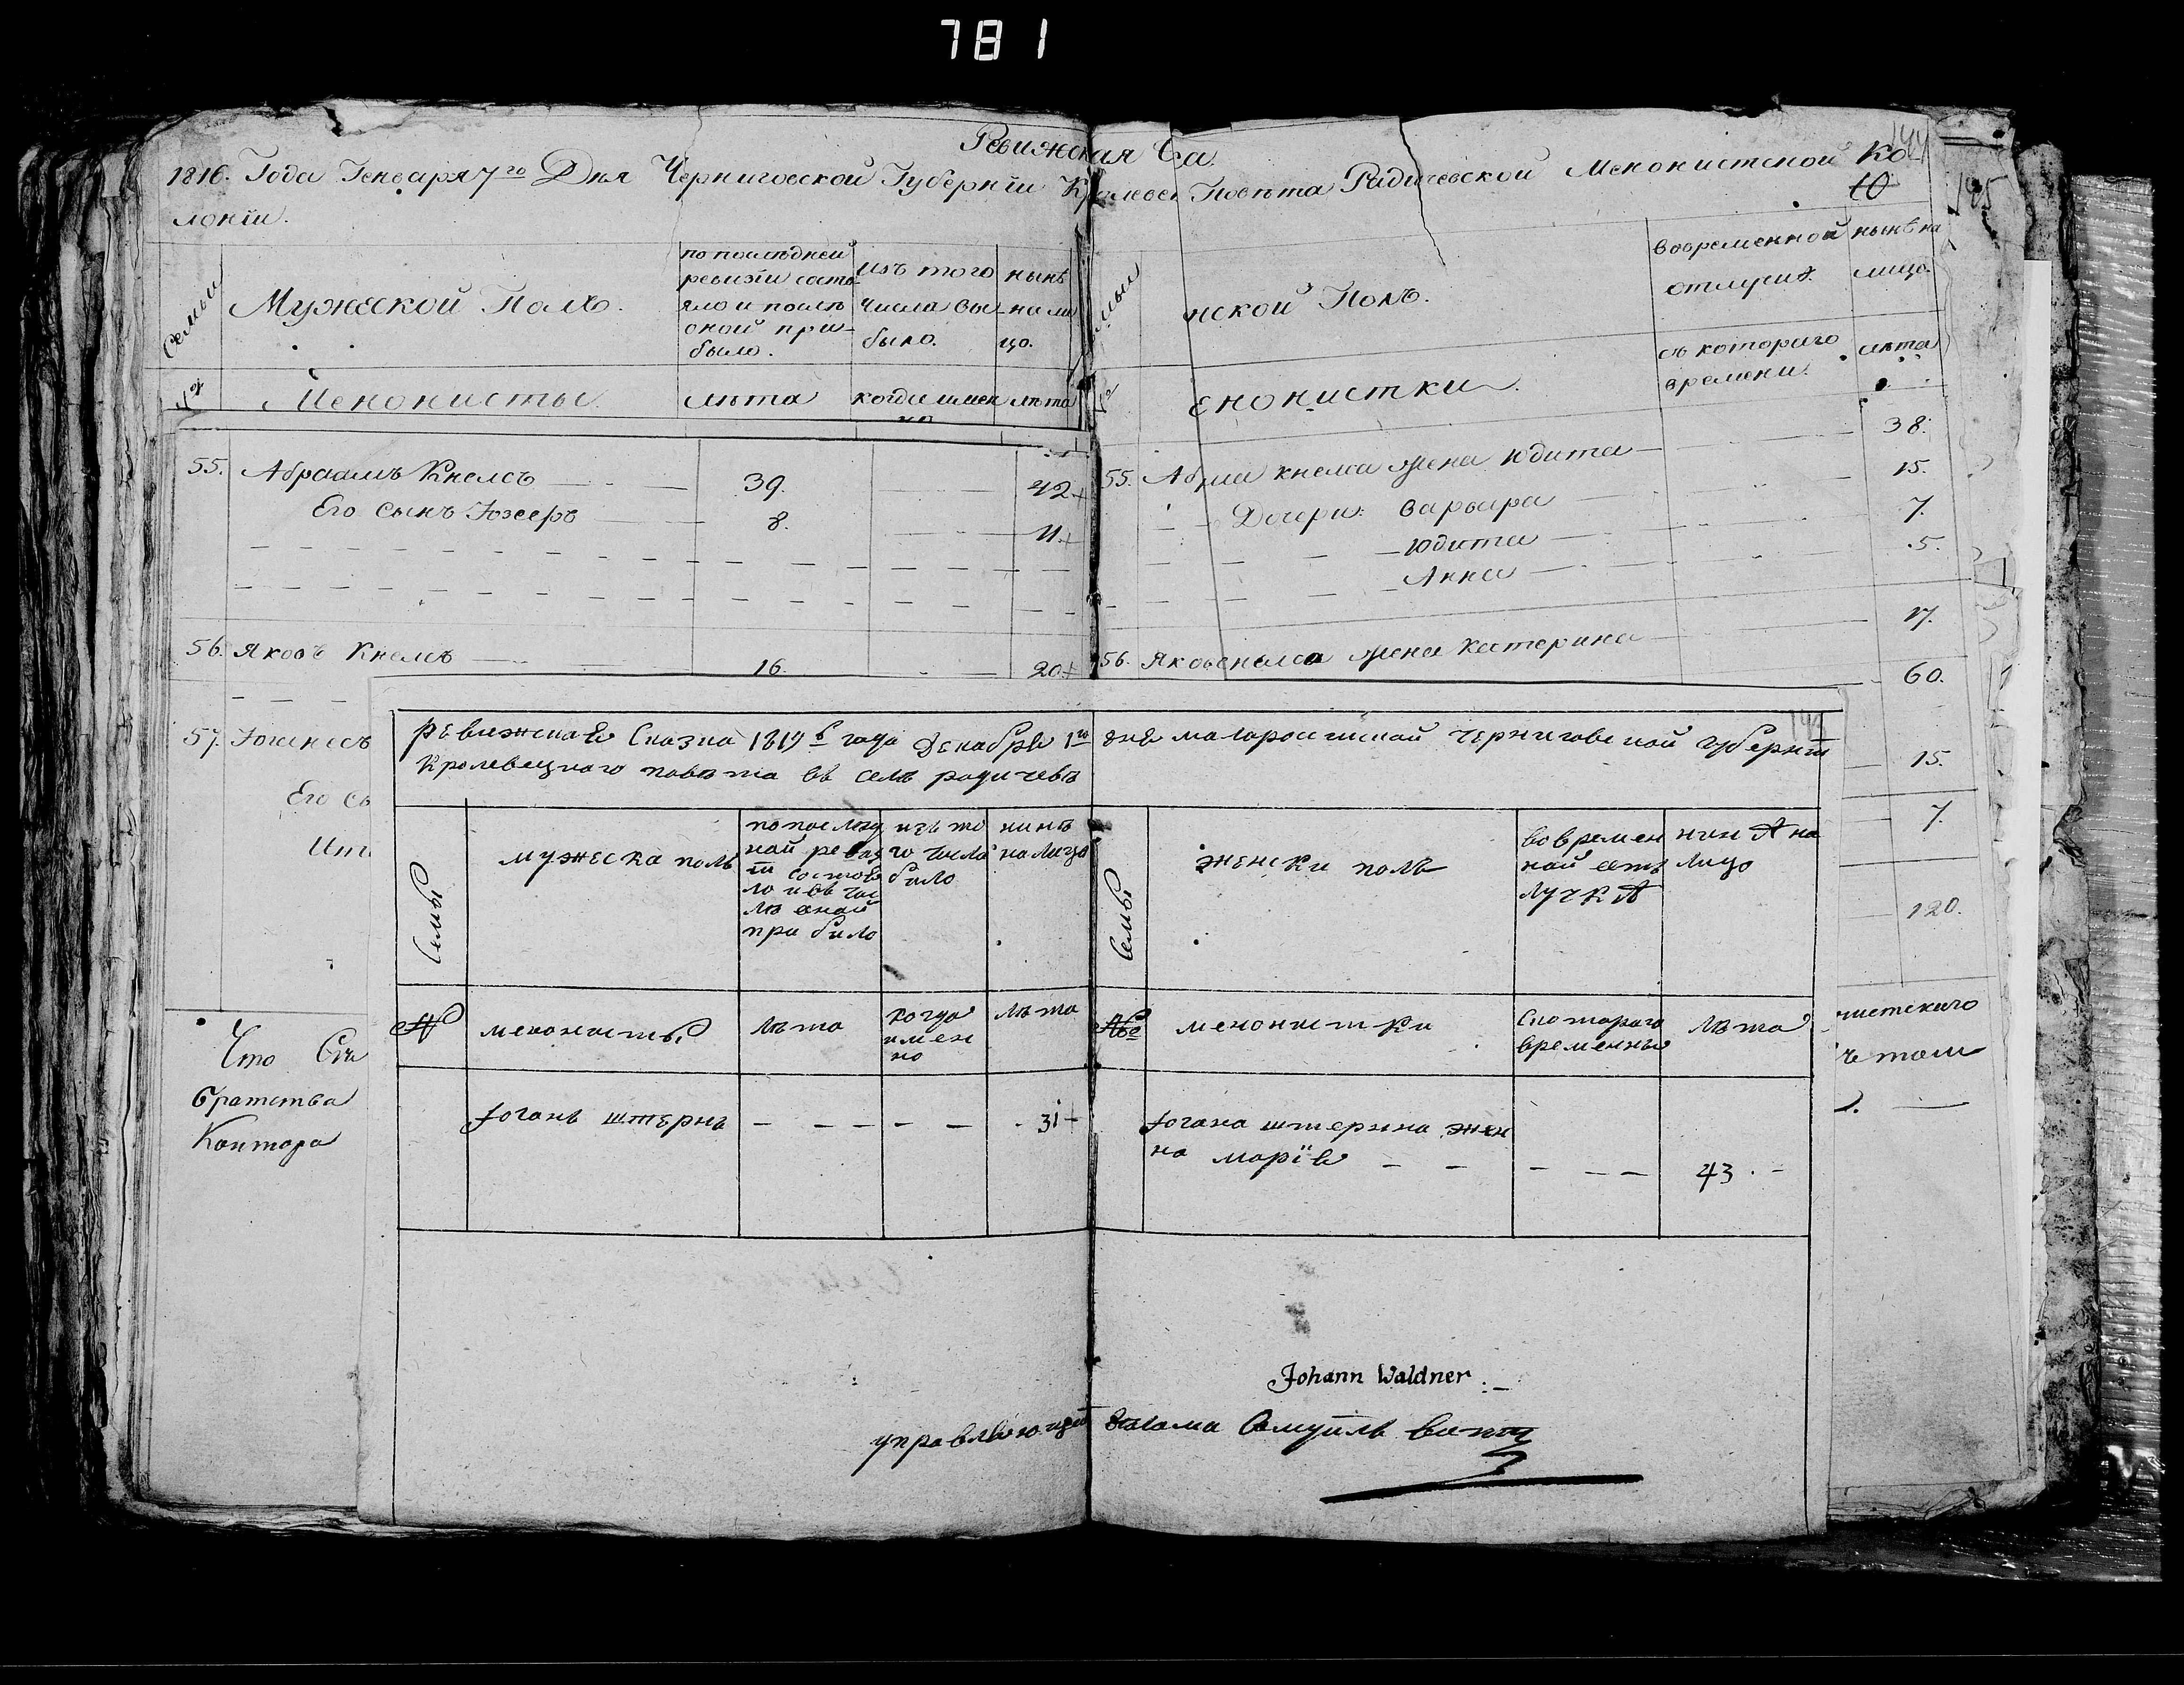 781
Ревижская Ска
1816. Года Генваря 7го Дня Черниговской Губернїи Кролевец Повѣта Радичевской Менонистской Ко
лонїи.
144
10
145
Семьи
Мужеской Полъ.
по послѣдней ревизїи состо яло и послѣ оной при было.
изъ того числа вы было.
нынѣ на ли цо.
нской Полъ.
вовременной отлучкѣ
нынѣ на лицо.
Менонисты
лѣта
когда имен но
лѣта
енонистки.
съ котораго времени.
лѣта
55. Абраамъ Кнелсъ 39. 42
Его Сынъ Іозефъ 8. 11
55. Абрма кнелса жена Юдита 38.
Дочери: Варвара 15.
Юдита 7.
Анна 5.
56. Яковъ Кнелсъ 16. 20
56. Якова кнелса жена Катерина 17.
60.
57. Іоганесъ
15.
Его Сы
7.
Ито
120.
Что Съ
нистскаго
братства
Контора
ревижская Сказка 1815 года Декабря 1го дня малоросийской черниговской губернїи
Кролевецкого повѣта въ селѣ родичевѣ
Семьи
мужеска полъ
по послед ней ревиз їи состоя ло и въ чис лѣ оной при било
изъ то го числа било
нинѣ на лицо
Семьи
женски полъ
во времен ной отъ лучкѣ
нинѣ на лицо
№
менонисты
лѣта
когда имен но
лѣта
№
менонистки
С котораго временны
лѣта
Іоганъ штернъ 31
Іогана штерна жен
на Марїя 43
Johann Waldner
управляющий